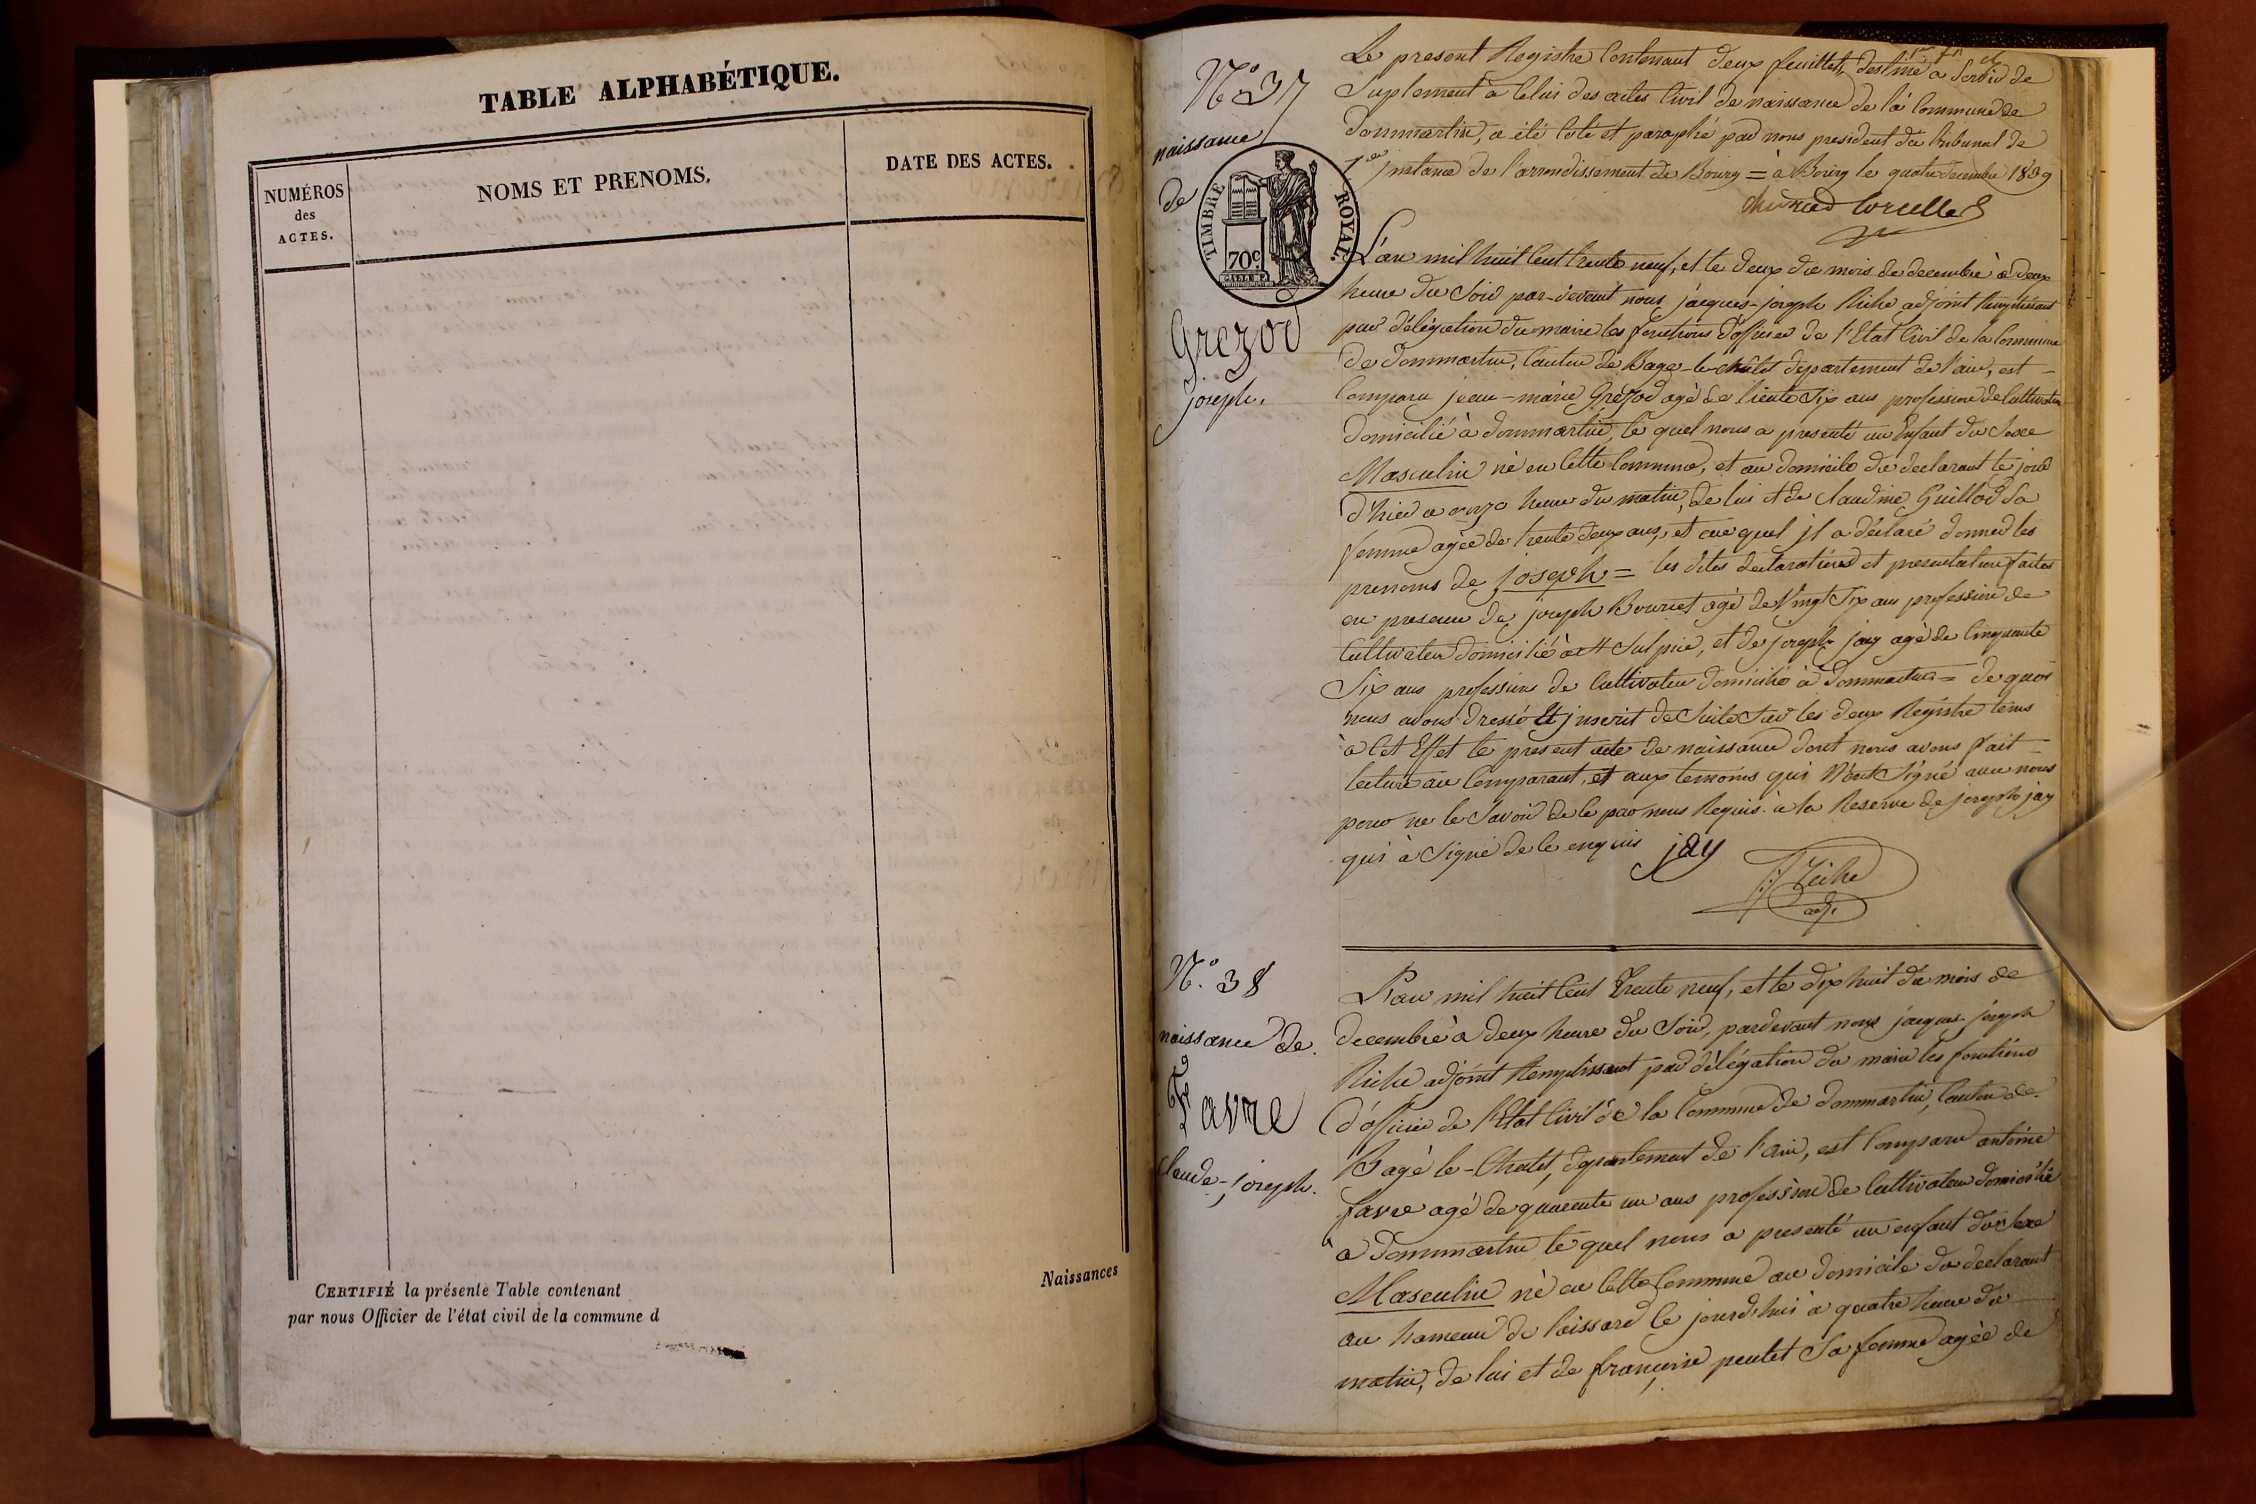 TABLE ALPHABÉTIQUE.
NUMÉROS
des
ACTES.
NOMS ET PRENOMS.
DATE DES ACTES.
CERTIFIÉ la présente Table contenant
par nous Officier de l'état civil de la commune d
Naissances
N.o 37
naissance
de
TIMBRE ROYAL.
70c.
Grezod
joseph.
Le present Registre Contenant deux feuillets, destiné a Servir de
Suplement à Celui des actes Civil de naissance de la Commune de
dommartin, a été Coté et paraphé par nous president du tribunal de
1ere jnstance de l'arrondissement de Bourg = à Bourg le quatre decembre 1839
L'an mil huit Cent trente neuf, et le deux du mois de decembre à deux
heure du Soir par-devant nous jacques-joseph Riche adjoint Remplissant
par délégation du maire les fonctions d'officier de l'Etat Civil de la Commune
de dommartin, Canton de Bagé-le-Chatel departement de l'ain, est
Comparu jean-marie Grezod agé de trente Six ans profession de Cultivateur
domicilié à dommartin, le quel nous a presenté un Enfant du Sexe
Masculin né en Cette Commune, et au domicile du declarant le jour
d'hier a onze heure du matin, de lui et de Claudine Guillod Sa
femme agée de trente deux ans, et au quel jl a déclaré donner les
prenoms de joseph = les dites declarations et presentation faites
en presence de joseph Bourcet agé de Vingt Six ans profession de
Cultivateur domicilié à St Sulpice, et de joseph jay agé de Cinquante
Six ans profession de Cultivateur domicilié à dommartin = de quoi
nous avons dressé Et jnscrit de Suite Sur les deux Registre tenus
à Cet Effet le present acte de naissance dont nous avons fait
lecture au Comparant, et aux temoins qui N'ont Signé avec nous
pour ne le Savoir de le par nous Requis à la Reserve de joseph jay
qui à Signé de le enquis jay
Riche
adj.
N.o 38
naissance de
Favre
Claude-joseph.
L'an mil huit Cent Trente neuf, et le dix huit du mois de
decembre à deux heure du Soir, pardevant nous jacques joseph
Riche adjoint Remplissant par délégation du maire les fonctions
d'officier de l'Etat Civil de la Commune de dommartin, Canton de
Bagé le-Chatel, departement de l'ain, est Comparu antoine
favre agé de quarente un ans profession de Cultivateur domicilié
à dommartin le quel nous a presenté un enfant du Sexe
Masculin né en Cette Commune au domicile du declarant
au hameau de loissard le jourd'hui à quatre heure du
matin, de lui et de françoise peulet Sa femme agée de